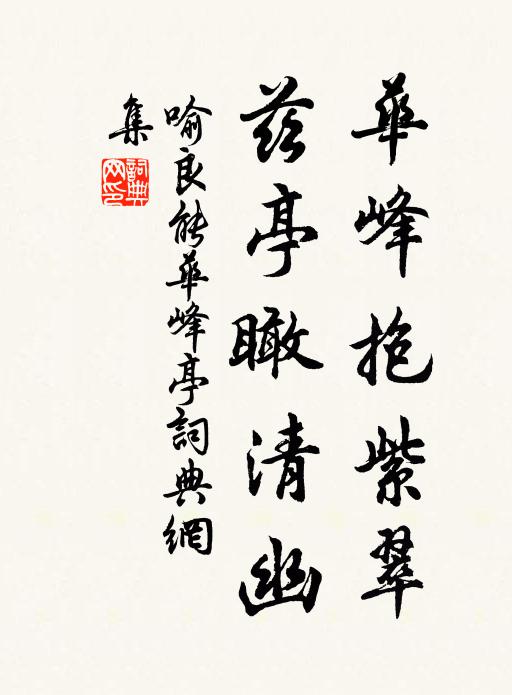 華峰抱紫翠
茲亭瞰清幽
喻良能華峰亭詞典網
集
詞典
网印